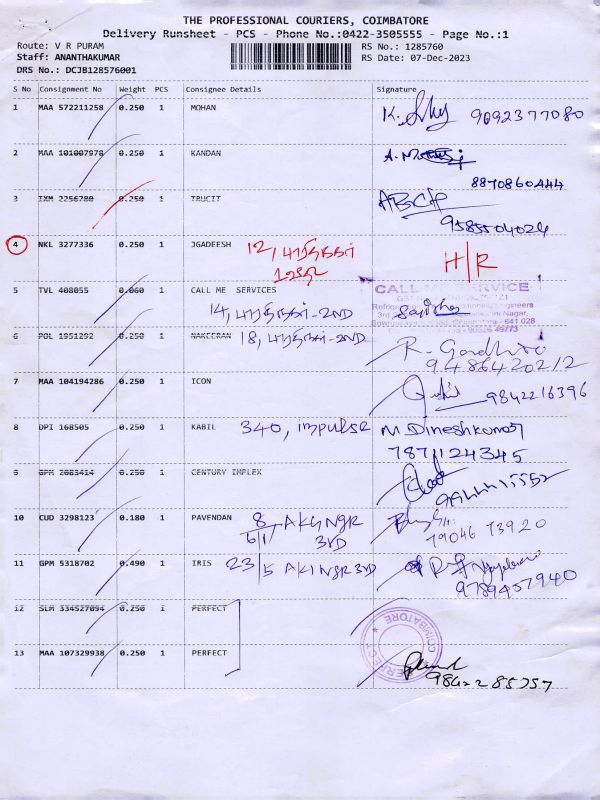 THE PROFESSIONAL COURIERS, COIMBATORE
Delivery Runsheet - PCS - Phone No.:0422-3505555 - Page No.:1
Route: V R PURAM
RS No.: 1285760
Staff: ANANTHAKUMAR
RS Date: 07-Dec-2023
DRS No.: DCJB128576001
S No Consignment No Weight PCS Consignee Details Signature
1 MAA 572211258 0.250 1 MOHAN 9092377080
2 MAA 101007978 0.250 1 KANDAN
8870860444
3 IXM 2256780 0.250 1 TRUCIT ABCH
9585504024
4 NKL 3277336 0.250 1 JGADEESH 12, பாரதிநகர் H/R
5 TVL 408055 0.060 1 CALL ME SERVICES CALL ME SERVICE
14, பாரதிநகர்-2ND
6 POL 1951292 0.250 1 NAKEERAN 18, பாரதிநகர்-2ND
9486420212
7 MAA 104194286 0.250 1 ICON 9842216396
8 DPI 168505 0.250 1 KABIL 340, impulse M. Dineshkumar
7871124345
9 GPM 2083414 0.250 1 CENTURY IMPLEX
10 CUD 3298123 0.180 1 PAVENDAN 8 6/1, AKG NGR
3RD
79046 73920
11 GPM 5318702 0.490 1 IRIS 23/5 AKG NGR 3RD
9789457940
12 SLM 334527094 0.250 1 PERFECT
COIMBATORE
PERFECT
13 MAA 107329938 0.250 1 PERFECT